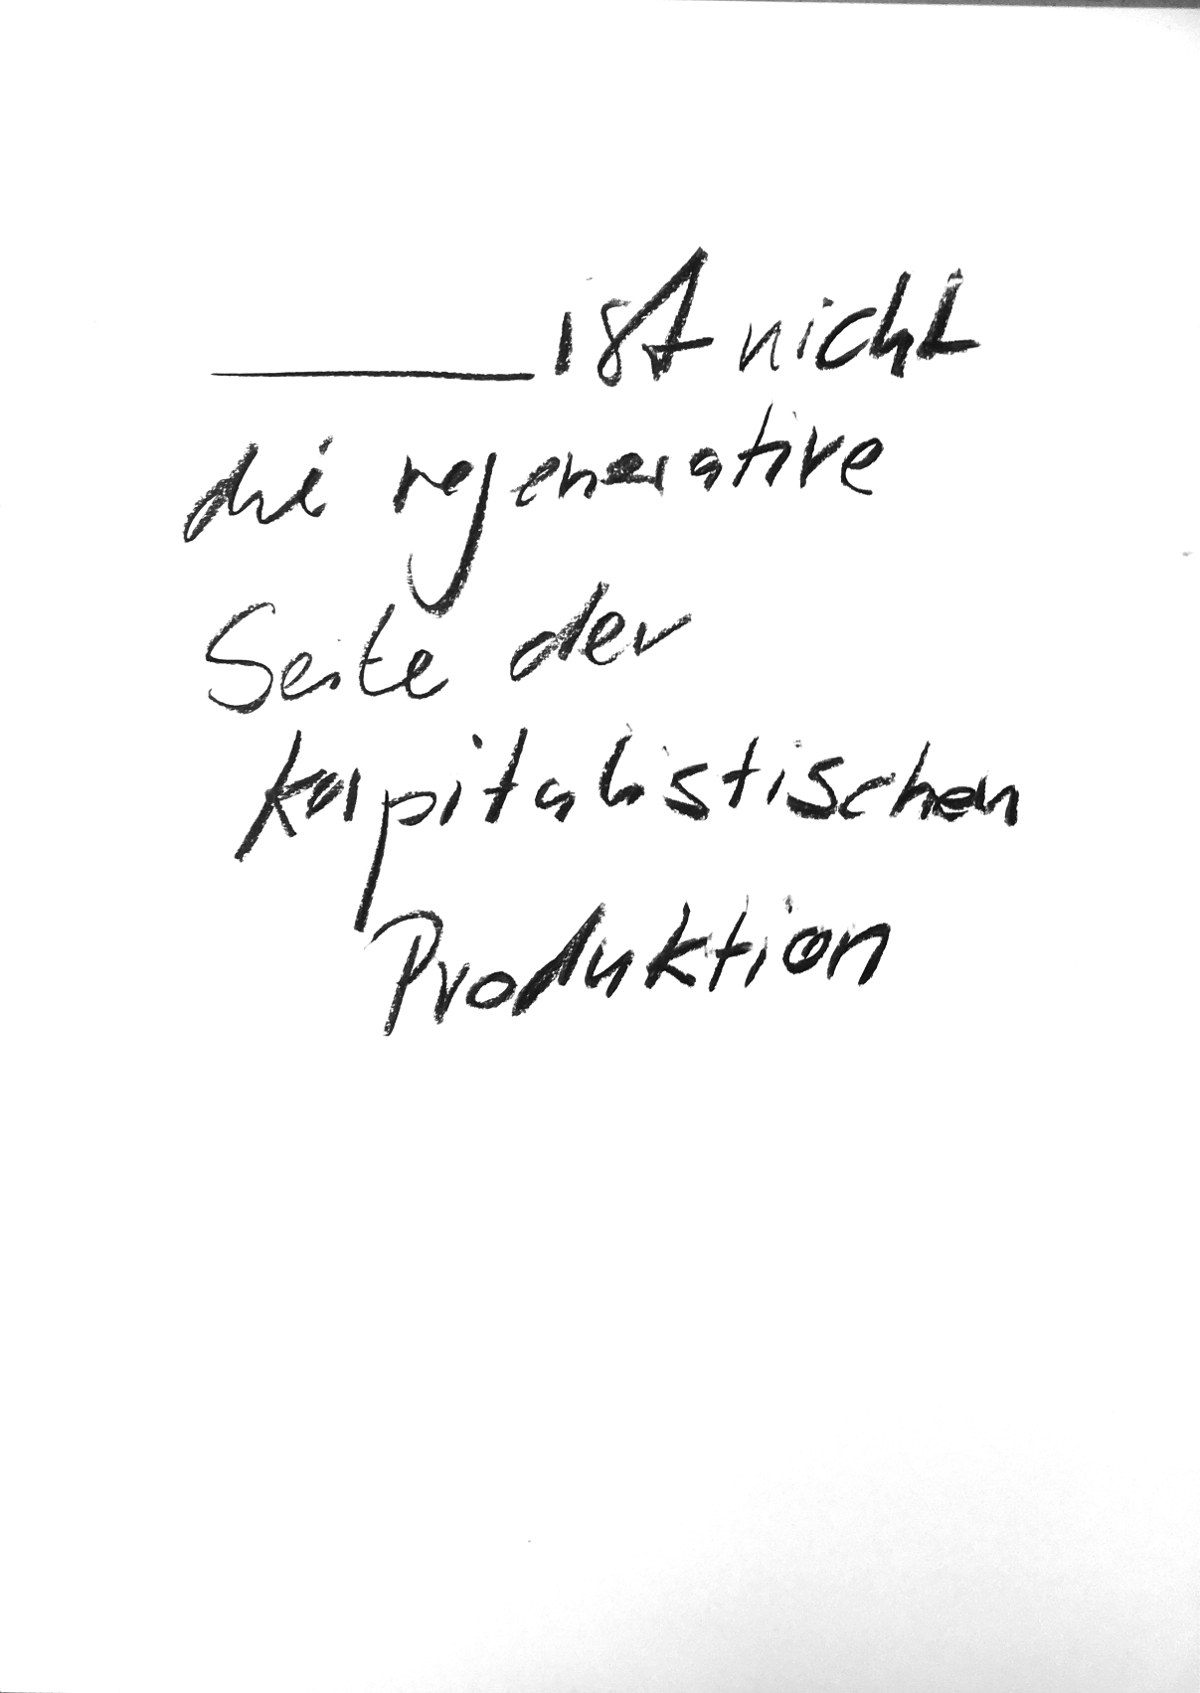 ________ ist nicht
die regenerative
Seite der
kapitalistischen
Produktion